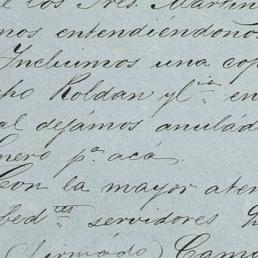 e los Sres. Martin
mos entendiéndono
Incluimos una cop
ho Roldan y l in en
al dejámos anulád
enero pª acá.
Con la mayor aten
bed tes servidores
(firmádo) Cam